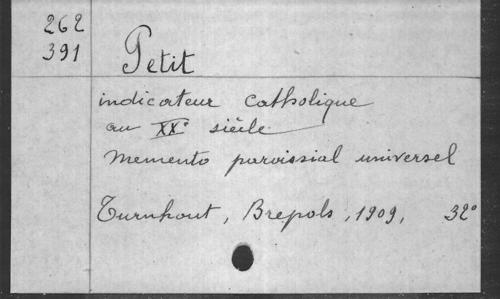 262
391
Petit
indicateur catholique
au XXe siècle
Memento paroissial universel
Turnhout, Brepols, 1909, 32°